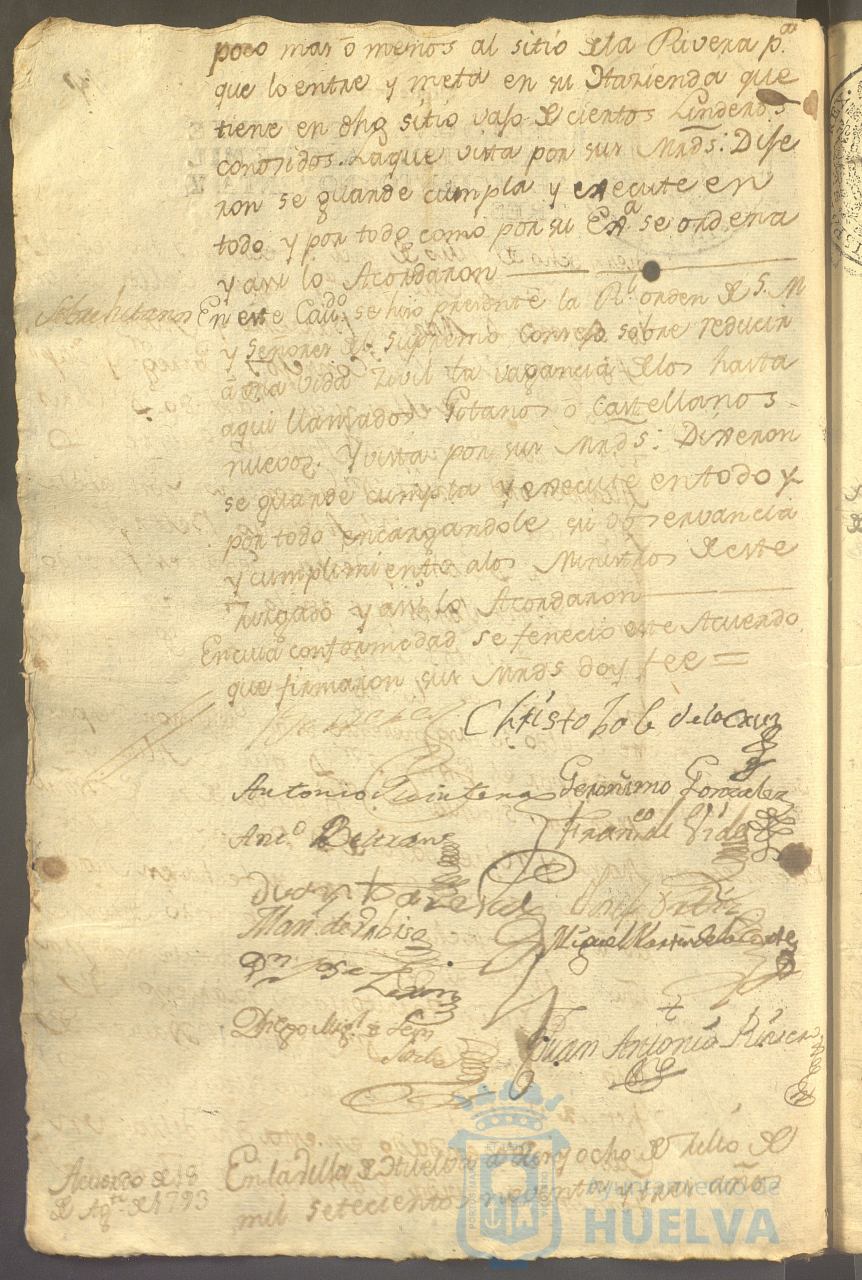 poco mas ò menos al sitio dela Rivera p.ª
que lo entre y meta en su Hazienda que
tiene en dhô sitio vajo de ciertos Linderos
conosidos. Laque vista por sus Mrds: Dije
ron se guarde cumpla y execute en
todo y por todo como por su Ex.ª se ordena
y assi lo Acordaron
Sobre hitanos
En este Cav.do se hizo presente la R.l orden de S. M
y Señores de su Supremo Consejo sobre reducir
à una vida Zivil la vagancia delos hasta
aqui llamados Gitanos ò Castellanos
nuevos. Y vista por sus Mrds: Dixeron
se guarde cumpla y execute en todo y
por todo encargandole su observancia
y cumplimiento alos Ministros de este
Juzgado y assi lo Acordaron
En cuia conformidad se fenecio este Acuerdo
que firmaron sus Mrds doy fee =
Christobal dela Cruz
Antonio Quintero Geronimo Gonzalez
Ant.o Beltran Fran.co Vides
Miguel Martin dela Corte
D.n Jose Leon
Diego Mig.l de Leon
Juan Antonio
Acuerdo de 18
de Ag.to de 1793
En la Villa de Huelva a diez y ocho de Julio de
mil setecientos noventa y tres años
Ayuntamiento de
HUELVA